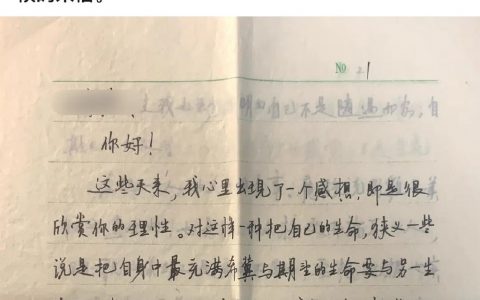 候的来信。
№ 21
你好！
这些天来，我心里出现了一个感想，即是很
欣赏你的理性。对这样一种把自己的生命，狭义一些
说是把自身中最充满希冀与期望的生命要与另一生